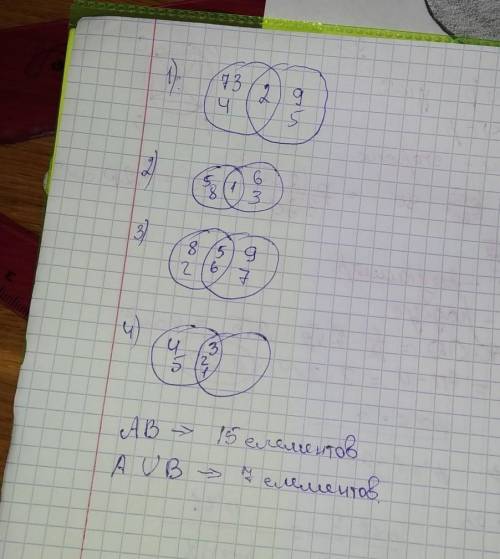 1)
73 2 9
4 5
2)
5 1 6
8 3
3)
8 5 9
2 6 7
4)
4 3
5 2
1
AB → 15 елементов
A ∪ B → 7 елементов.